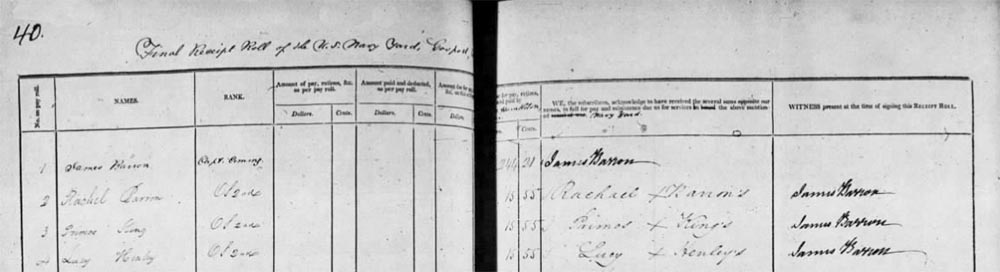 40.
Final Receipt Roll of the U.S. Navy Yard, Gosport,
No. on pay roll.
NAMES.
RANK.
Amount of pay, rations, &c. as per pay roll.
Amount paid and deducted, as per pay roll.
Dollars. Cents. Dollars. Cents. Dollars. Cents.
WE, the subscribers, acknowledge to have received the several sums opposite our names, in full for pay and subsistence due us for services in the above mentioned Navy Yard.
WITNESS present at the time of signing this RECEIPT ROLL.
1 James Barron Capt. Comg. 244 21 James Barron
2 Rachel Barron OS 2nd 15 55 Rachael + Barron's James Barron
3 Primos King OS 2nd 15 55 Primos + King's James Barron
4 Lucy Henley OS 2nd 15 55 Lucy + Henley's James Barron